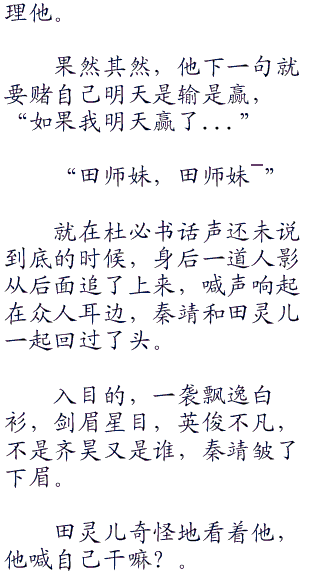 理他。
果然其然，他下一句就
要赌自己明天是输是赢，
“如果我明天赢了...”
“田师妹，田师妹¯”
就在杜必书话声还未说
到底的时候，身后一道人影
从后面追了上来，喊声响起
在众人耳边，秦靖和田灵儿
一起回过了头。
入目的，一袭飘逸白
衫，剑眉星目，英俊不凡，
不是齐昊又是谁，秦靖皱了
下眉。
田灵儿奇怪地看着他，
他喊自己干嘛？。